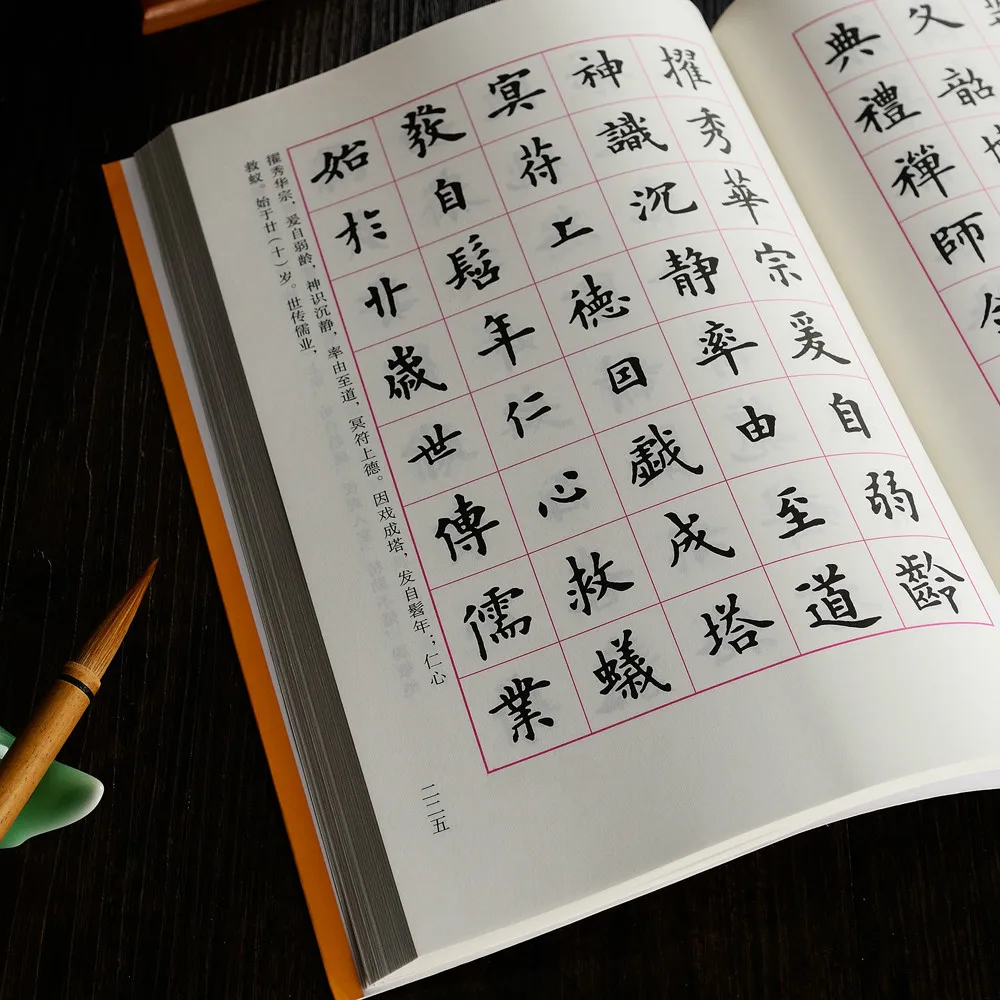 父韶
典禮禪師
擢秀華宗爰自弱齡
神識沉静率由至道
冥苻上德囙戲成塔
發自髫年仁心救蟻
始於廿歲世傳儒業
擢秀华宗，爰自弱龄，神识沉静，率由至道，冥符上德。因戏成塔，发自髫年；仁心
救蚁。始于廿（十）岁。世传儒业，
二二五